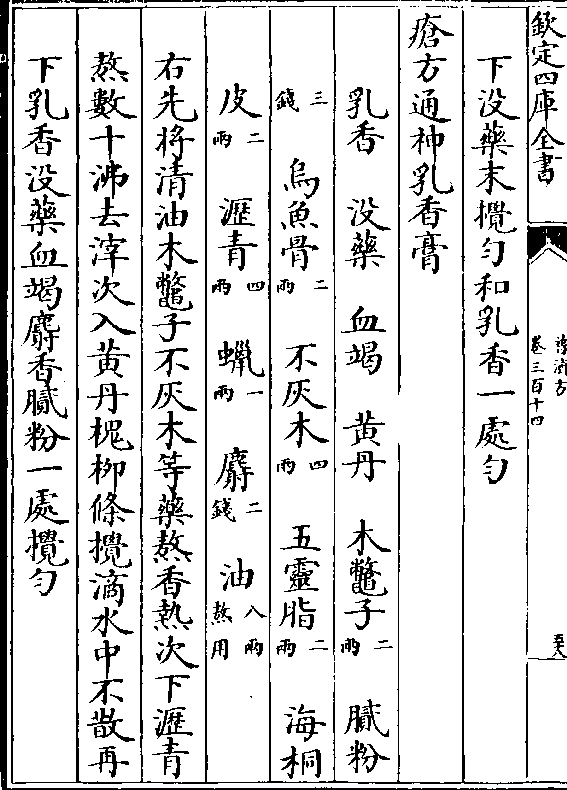 欽定四庫全書
普濟方
卷三百十四
下没藥末攪勻和乳香一處勻
瘡方通神乳香膏
乳香 没藥 血竭 黄丹 木鼈子二兩 膩粉
三錢 烏魚骨二兩 不灰木四兩 五靈脂二兩 海桐
皮二兩 瀝青四兩 蠟一兩 麝二錢 油八兩熬用
右先将清油木鼈子不灰木等藥熬香熟次下瀝青
熬數十沸去滓次入黄丹槐柳條攪滴水中不散再
下乳香没藥血竭麝香膩粉一處攪勻